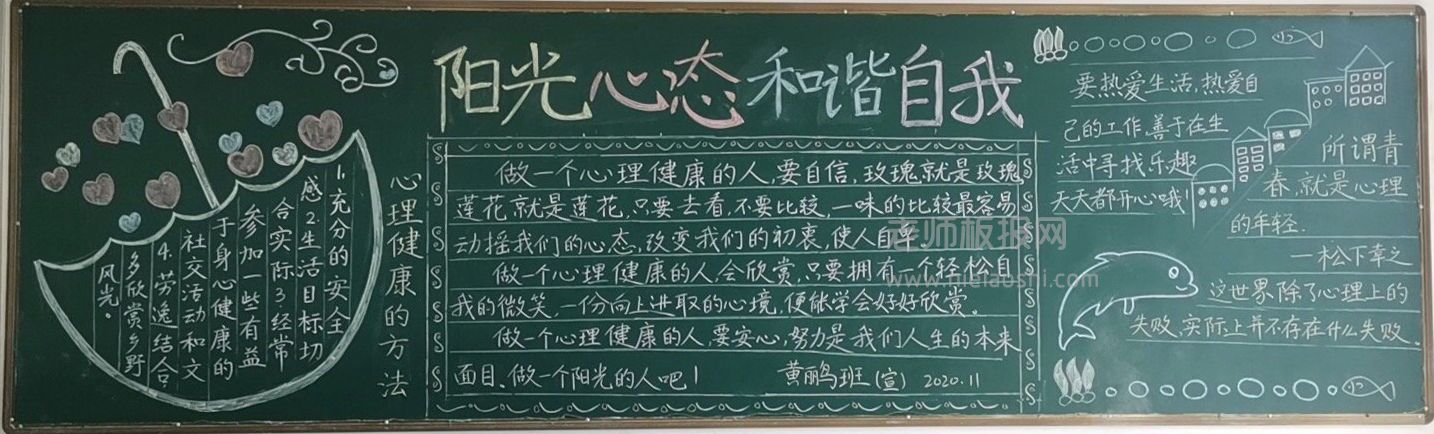 阳光心态和谐自我
心理健康的方法
1.充分的安全
感2生活目标切
合实际3.经常
参加一些有益
于身心健康的
社交活动和文
4.劳逸结合
多欣赏乡野
风光。
做一个心理健康的人,要自信,玫瑰就是玫瑰
莲花就是莲花,只要去看,不要比较,一味的比较最容易
动摇我们的心态,改变我们的初衷,使人自卑
做一个心理健康的人,会欣赏,只要拥有一个轻松自
我的微笑,一份向上进取的心境,便能学会好好欣赏。
做一个心理健康的人,要安心,努力是我们人生的本来
面目、做一个阳光的人吧!
黄鹂班(宣) 2020.11
要热爱生活,热爱自
己的工作,善于在生
活中寻找乐趣
天天都开心哦!
所谓青
春,就是心理
的年轻.
一松下幸之
这世界除了心理上的
失败,实际上并不存在什么失败.
老师板报网